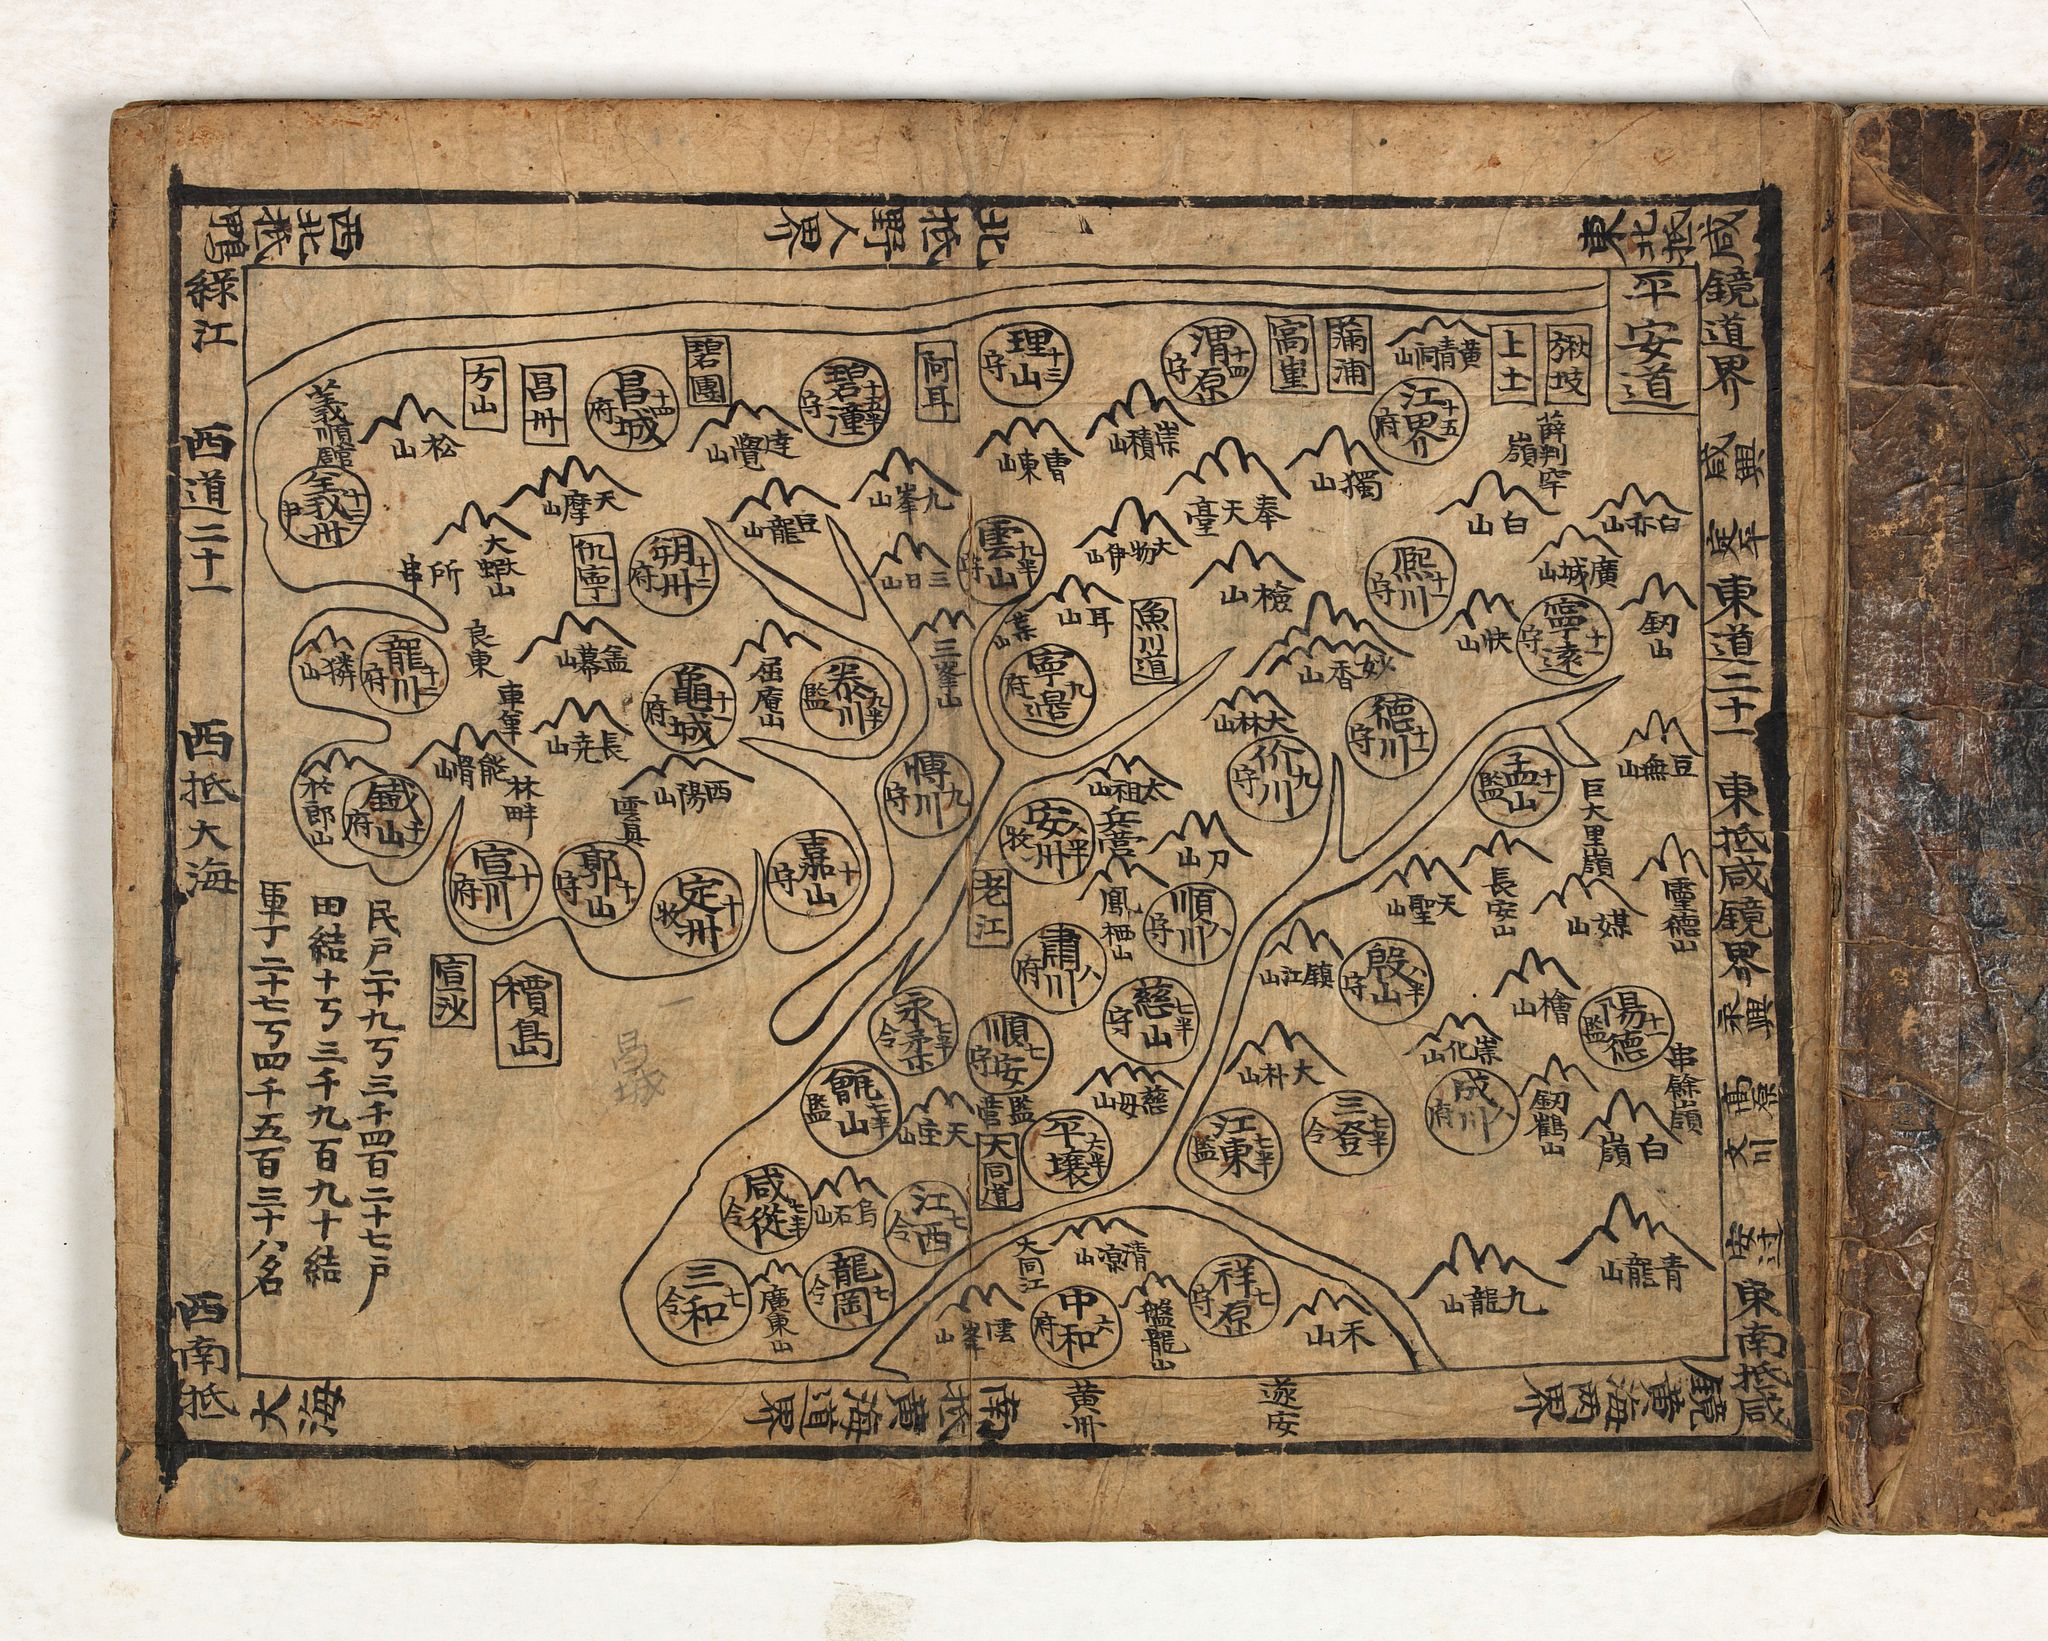 平安道
東北抵咸
鏡道界
咸興
東道二十一
東抵咸鏡界
永興
文川
東南抵咸
鏡黃海兩界
北抵野人界
西北抵鴨
綠江
西道二十一
西抵大海
西南抵
大海
南抵黃海道界
黃州
遂安
楸坡
上土
黃青洞山
蒲浦
高里
渭原 十四 守
理山 十三 守
阿耳
碧潼 十五半 守
碧團
昌城 十四 府
昌州
方山
松山
義順館
義州 十二 尹
江界 十五 府
薛判罕嶺
崇積山
曹東山
達覺山
白亦山
白山
獨山
奉天臺
九峯山
豆龍山
天摩山
大楸山
所串
仇寧
朔州 十二 府
三日山
雲山 九半 守
大物伊山
檢山
熙川 十一 守
廣城山
劒山
寧遠 十一 守
快山
妙香山
魚川道
耳山
寧邊 九 府
三峯山
泰川 九半 監
屈庵山
龜城 十一 府
盖幕山
良東
龍川 十二 府
獜山
車輦
長尭山
能澗山
林畔
西陽山
雲具
鐵山 十二 府
宣川 十 府
郭山 十 守
定州 十 牧
嘉山 十 守
博川 九 守
大林山
价川 九 守
德川 十一 守
孟山 十一 監
豆無山
巨大里嶺
太祖山
兵營
安州 八半 牧
刀山
老江
鳳栖山
順川 八 守
肅川 八 府
長安山
天聖山
媒山
靈德山
鎮江山
殷山 八半 守
檜山
陽德 十一 監
串餘嶺
慈山 七半 守
崇化山
成川 八 府
劒鶴山
白嶺
大朴山
三登 七半 令
江東 七半 監
慈母山
順安 七 守
永柔 七半 令
甑山 七半 監
天庄山
監營
大同道
平壤 六半
咸從 七半 令
烏石山
江西 七 令
三和 七 令
廣東山
龍岡 七 令
大同江
清凉山
雲峯山
中和 六 府
盤龍山
祥原 七 守
禾山
九龍山
青龍山
宣沙
椵島
昌城
民戶二十九丂三千四百二十七戶
田結十丂三千九百九十結
軍丁二十七丂四千五百三十八名